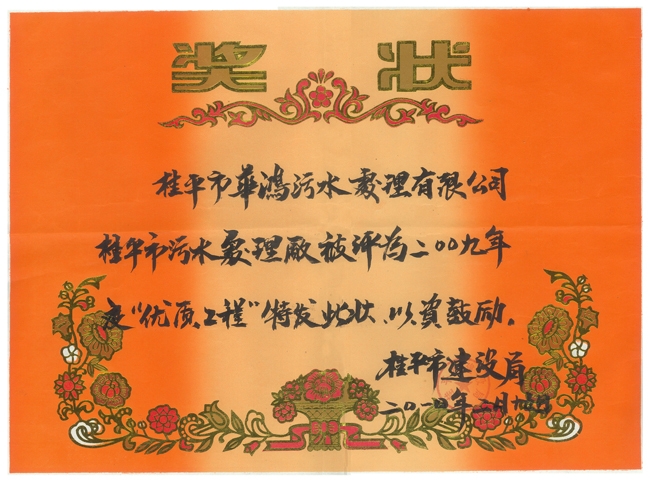 奖状
桂平市華鴻污水處理有限公司
桂平市污水處理廠被评為二00九年
度"优质工程"特发此状、以資鼓励。
桂平市建设局
二〇一〇年二月